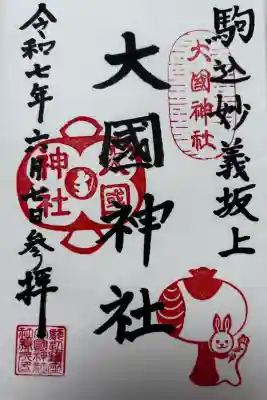 駒込妙義坂上
大國神社
大國神社
大國神社
令和七年六月七日参拝